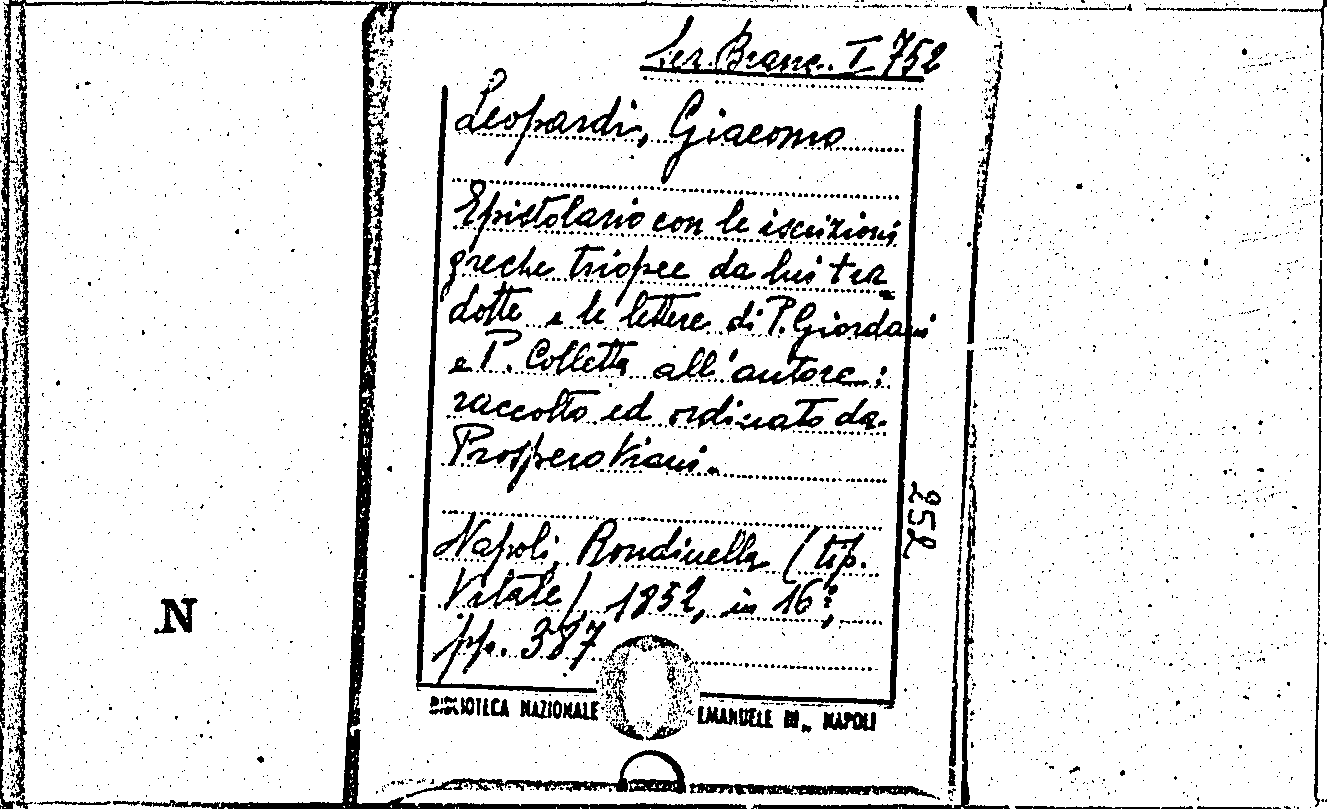 Ser. Branc. I 752
Leopardi, Giacomo
Epistolario con le iscrizioni
greche triopee da lui tra_
dotte e le lettere di P. Giordani
e P. Colletta all'autore;
raccolto ed ordinato da
Prospero Viani.
252
Napoli, Rondinella (tip.
Vitale), 1852, in 16º,
pp. 387
N
BIBLIOTECA NAZIONALE EMANUELE III„ NAPOLI